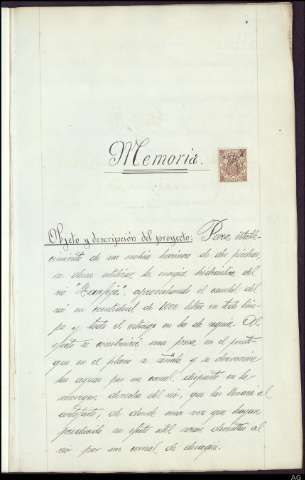 Memoria.
Objeto y descripción del proyecto: Para estable-
cimiento de un molino harinero de dos piedras
se desea utilizar la energía hidráulica del
río aprovechando el caudal del
río en cantidad de 1000 litros en todo tiem-
po y todo el estiage en los de agua. Al
efecto se construirá una presa en el punto
que en el plano se señala y se derivarán
las aguas por un canal, dispuesto en la
margen derecha del río, que las llevará al
artefacto, de donde una vez que hayan
producido su efecto útil serán devueltas al
río por un canal de desagüe.
AG